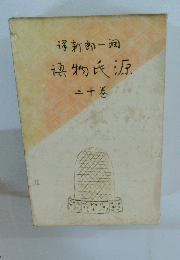 譯郎新一潤
語物氏源
二十巻